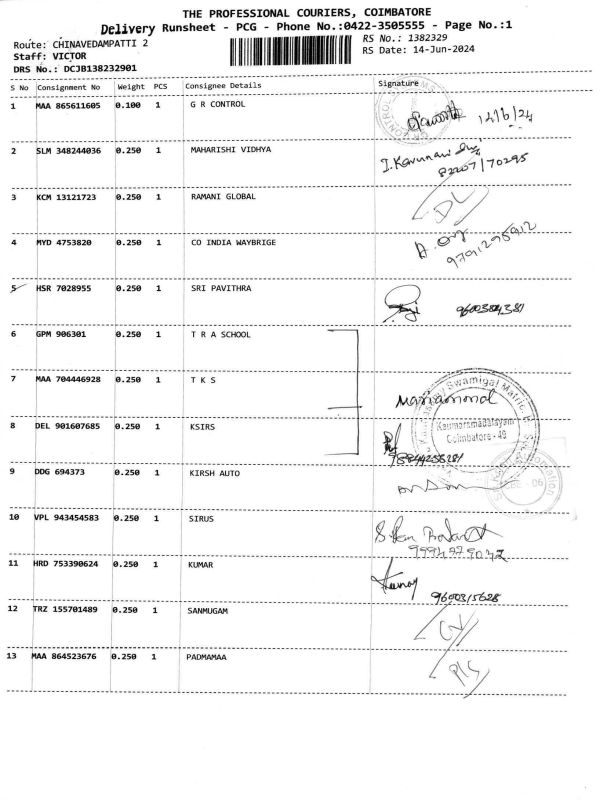 THE PROFESSIONAL COURIERS, COIMBATORE
Delivery Runsheet - PCG - Phone No.:0422-3505555 - Page No.:1
Route: CHINAVEDAMPATTI 2
RS No.: 1382329
Staff: VICTOR
RS Date: 14-Jun-2024
DRS No.: DCJB138232901
S No Consignment No Weight PCS Consignee Details Signature
1 MAA 865611605 0.100 1 G R CONTROL
2 SLM 348244036 0.250 1 MAHARISHI VIDHYA
82207/70295
3 KCM 13121723 0.250 1 RAMANI GLOBAL
DL
4 MYD 4753820 0.250 1 CO INDIA WAYBRIGE
9791295912
5 HSR 7028955 0.250 1 SRI PAVITHRA
9600304381
6 GPM 906301 0.250 1 T R A SCHOOL
7 MAA 704446928 0.250 1 T K S
8 DEL 901607685 0.250 1 KSIRS
Swamigal Matric.
Kaumaramadalayam
Coimbatore - 49
9 DDG 694373 0.250 1 KIRSH AUTO
10 VPL 943454583 0.250 1 SIRUS
11 HRD 753390624 0.250 1 KUMAR
9600315628
12 TRZ 155701489 0.250 1 SANMUGAM
13 MAA 864523676 0.250 1 PADMAMAA